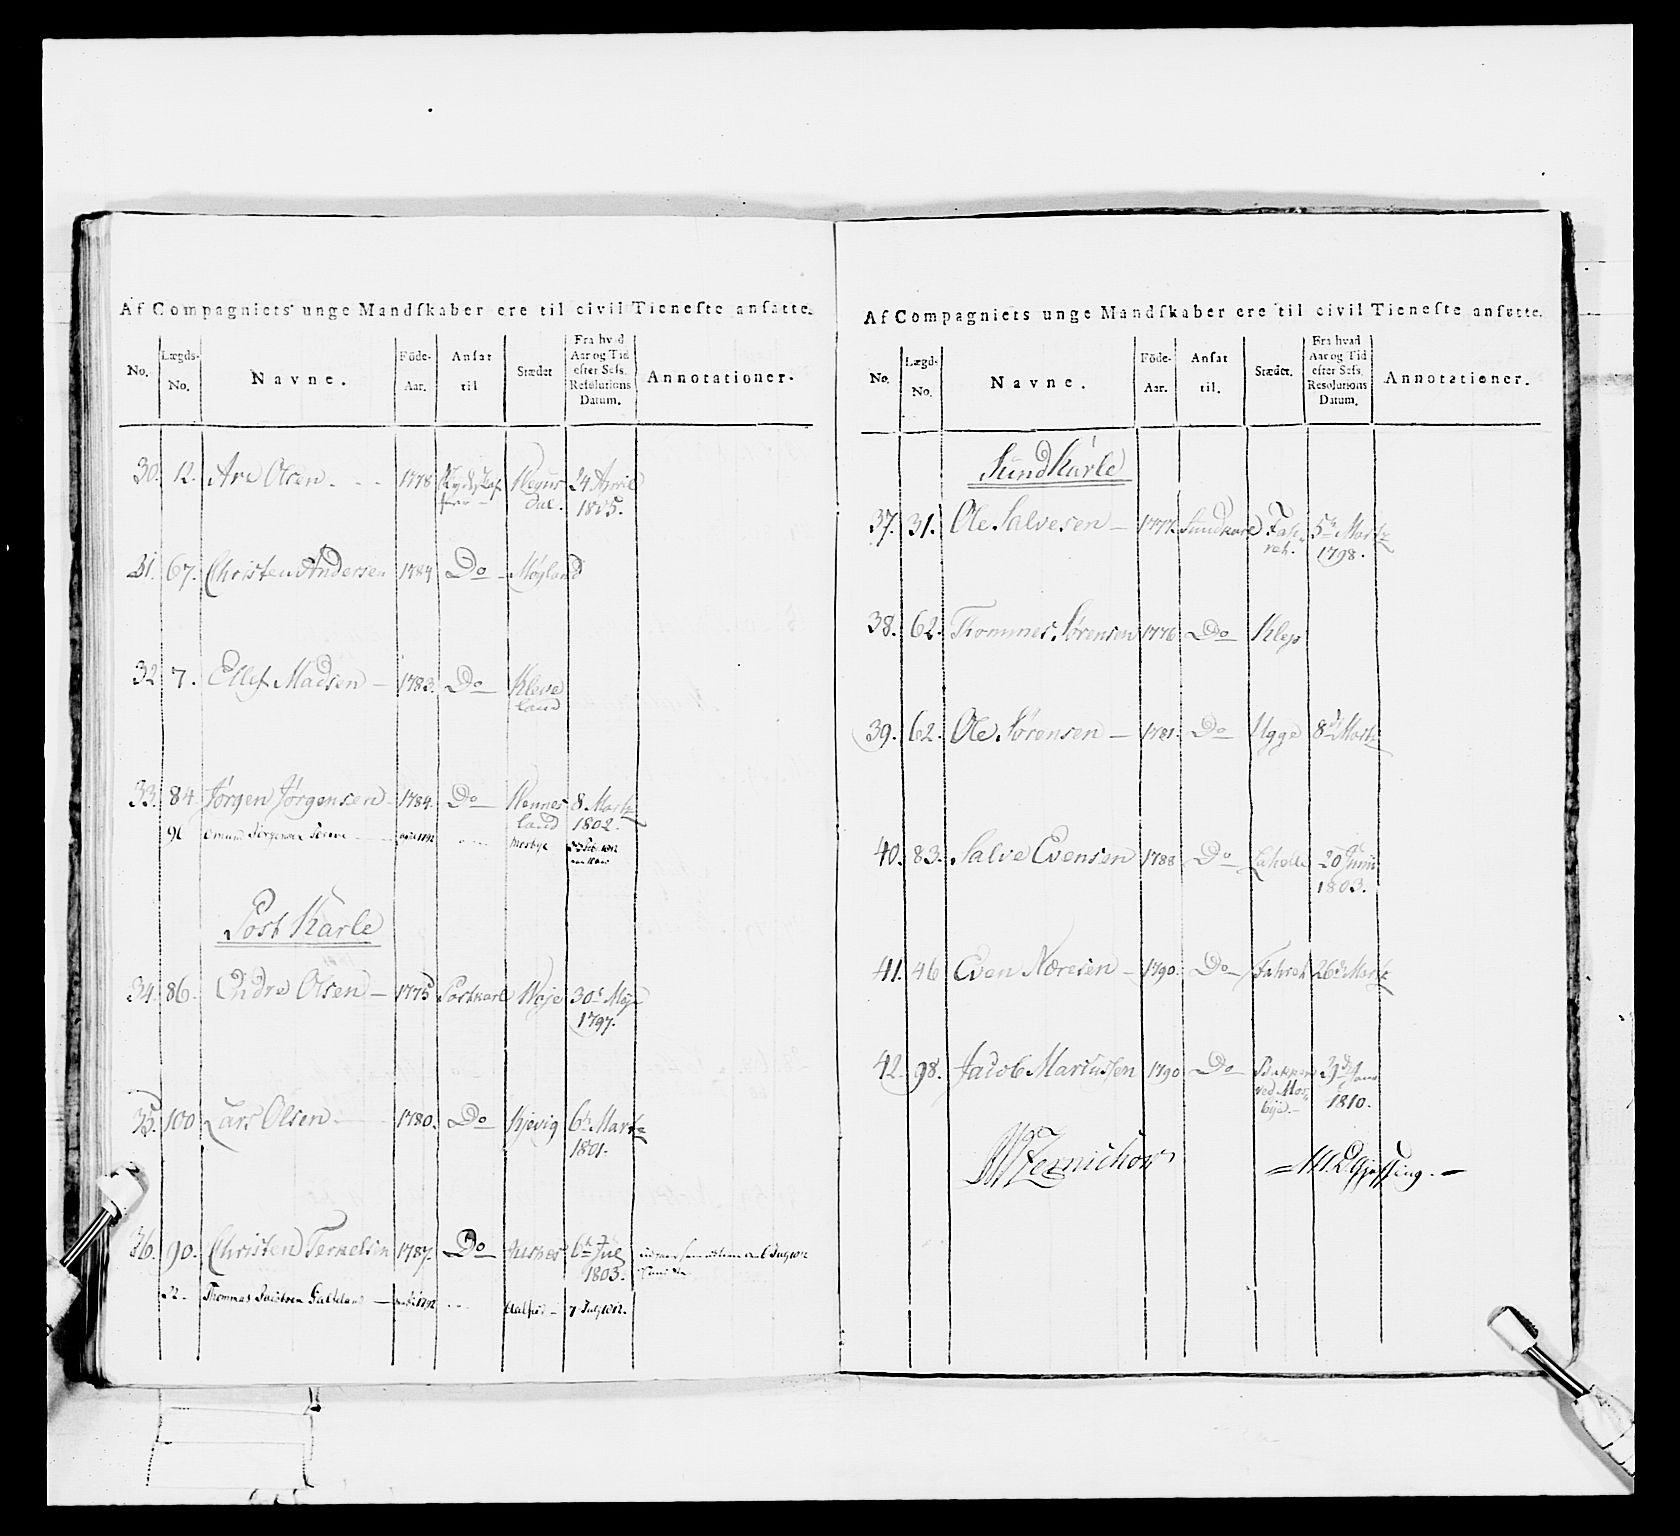 Af Compagniets unge Mandſkaber ere til civil Tieneſte anſatte.
No. Lægds-No. Navne. Föde-Aar. Anſat til Stædet Fra hvad Aar og Tid efter Seſs. Reſolutions Datum. Annotationer.
30. 12. Are Olsen. 1778 24 April
dal. 1805.
31. 67. Christen Andersen 1784 Do Møyland
32 7. Ellef Madsen 1783. Do Kleve
land
33. 84. Jørgen Jørgensen 1784. Do Wennes 8 Martz
land 1802.
96 Mosbye
Post Karle
34. 86. Endre Olsen 1775 Postkarl Weje 30t May
1797.
35. 100 Lars Olsen 1780. Do Kjevig 6t Martz
1801.
36. 90. Christen Terkelsen 1787. Do 6t Jul
1803.
22. Thommas Jacobsen 7 July 1812.
Af Compagniets unge Mandſkaber ere til civil Tieneſte anſatte.
No. Lægd-No. Navne. Föde-Aar. Anſat til. Stædet. Fra hvad Aar og Tid efter Seſs. Reſolutions Datum. Annotationer.
Sund Karle
37. 31. Ole Salvesen 1777. Sundkarl 5t Martz
1798.
38. 62. Tommes Sørensen 1776 Do Klep
39. 62. Ole Sørensen 1781. Do Ugge 8t Martz
40. 83. Salve Evensen 1788 Do 20 Junii
1803.
41. 46 Even Næresen 1790. Do Fahret 26t Martz
42. 98. Jacob Mariussen 1790 Do
ved Mos
bye 1810.